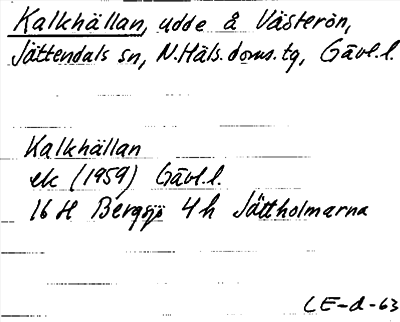 Kalkhällan, udde å Västerön,
Jättendals sn, N.Häls.doms.tg, Gävl.l.
Kalkhällan
ek (1959) Gävl.l.
16 H Bergsjö 4h Jättholmarna
CE-d-63